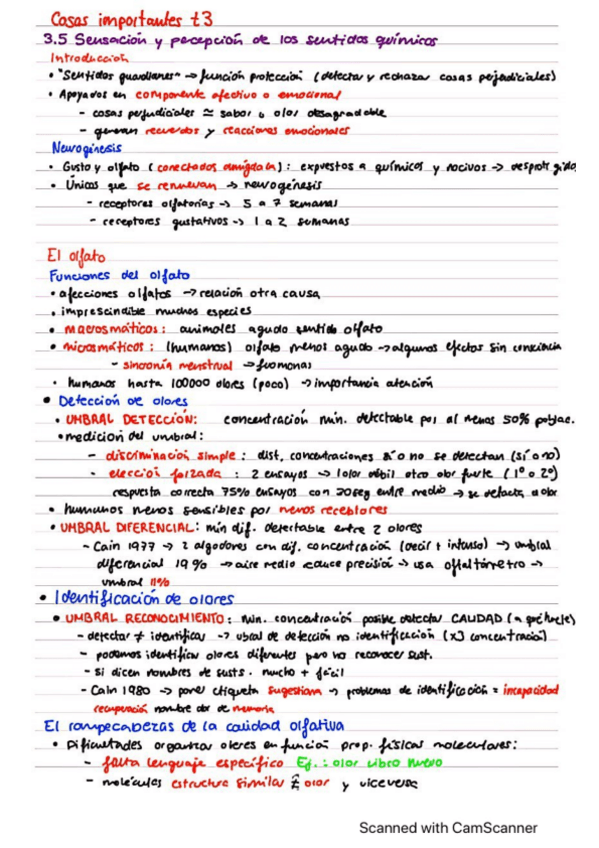 Cosas importantes t3
3.5 Sensación y percepción de los sentidos químicos
Introducción
• "Sentidos guardianes" → función protección (detectar y rechazar cosas perjudiciales)
• Apoyados en componente afectivo o emocional
- cosas perjudiciales ≃ sabor u olor desagradable
- generan recuerdos y reacciones emocionales
Neurogénesis
• Gusto y olfato (conectados amígdala): expuestos a químicos y nocivos → desprotegidos
• Únicos que se renuevan → neurogénesis
- receptores olfatorios → 5 a 7 semanas
- receptores gustativos → 1 a 2 semanas
El olfato
Funciones del olfato
• afecciones olfatos → relación otra causa
• imprescindible muchas especies
• macrosmáticos: animales agudo sentido olfato
• microsmáticos: (humanos) olfato menos agudo → algunos efectos sin conciencia
- sincronía menstrual → feromonas
• humanos hasta 100000 olores (poco) → importancia atención
• Detección de olores
• UMBRAL DETECCIÓN: concentración min. detectable por al menos 50% poblac.
• medición del umbral:
- discriminación simple: dist. concentraciones sí o no se detectan (sí o no)
- elección forzada: 2 ensayos → 1 olor débil otro olor fuerte (1º o 2º)
respuesta correcta 75% ensayos con 30seg entre medio → se detecta olor
• humanos menos sensibles por menos receptores
• UMBRAL DIFERENCIAL: min dif. detectable entre 2 olores
- Cain 1977 → 2 algodones con dif. concentración (decir + intenso) → umbral
diferencial 19% → aire medio reduce precisión → usa olfatómetro →
umbral 11%
• Identificación de olores
• UMBRAL RECONOCIMIENTO: min. concentración posible detectar CALIDAD (a qué huele)
- detectar ≠ identificar → umbral de detección no identificación (x3 concentración)
- podemos identificar olores diferentes pero no reconocer sust.
- si dicen nombres de susts. mucho + fácil
- Cain 1980 → poner etiqueta sugestiona → problemas de identificación = incapacidad
recuperación nombre olor de memoria
El rompecabezas de la calidad olfativa
• Dificultades organizar olores en función prop. físicas moleculares:
- falta lenguaje específico Ej.: olor libro nuevo
- moléculas estructura similar ≠ olor y viceversa
Scanned with CamScanner